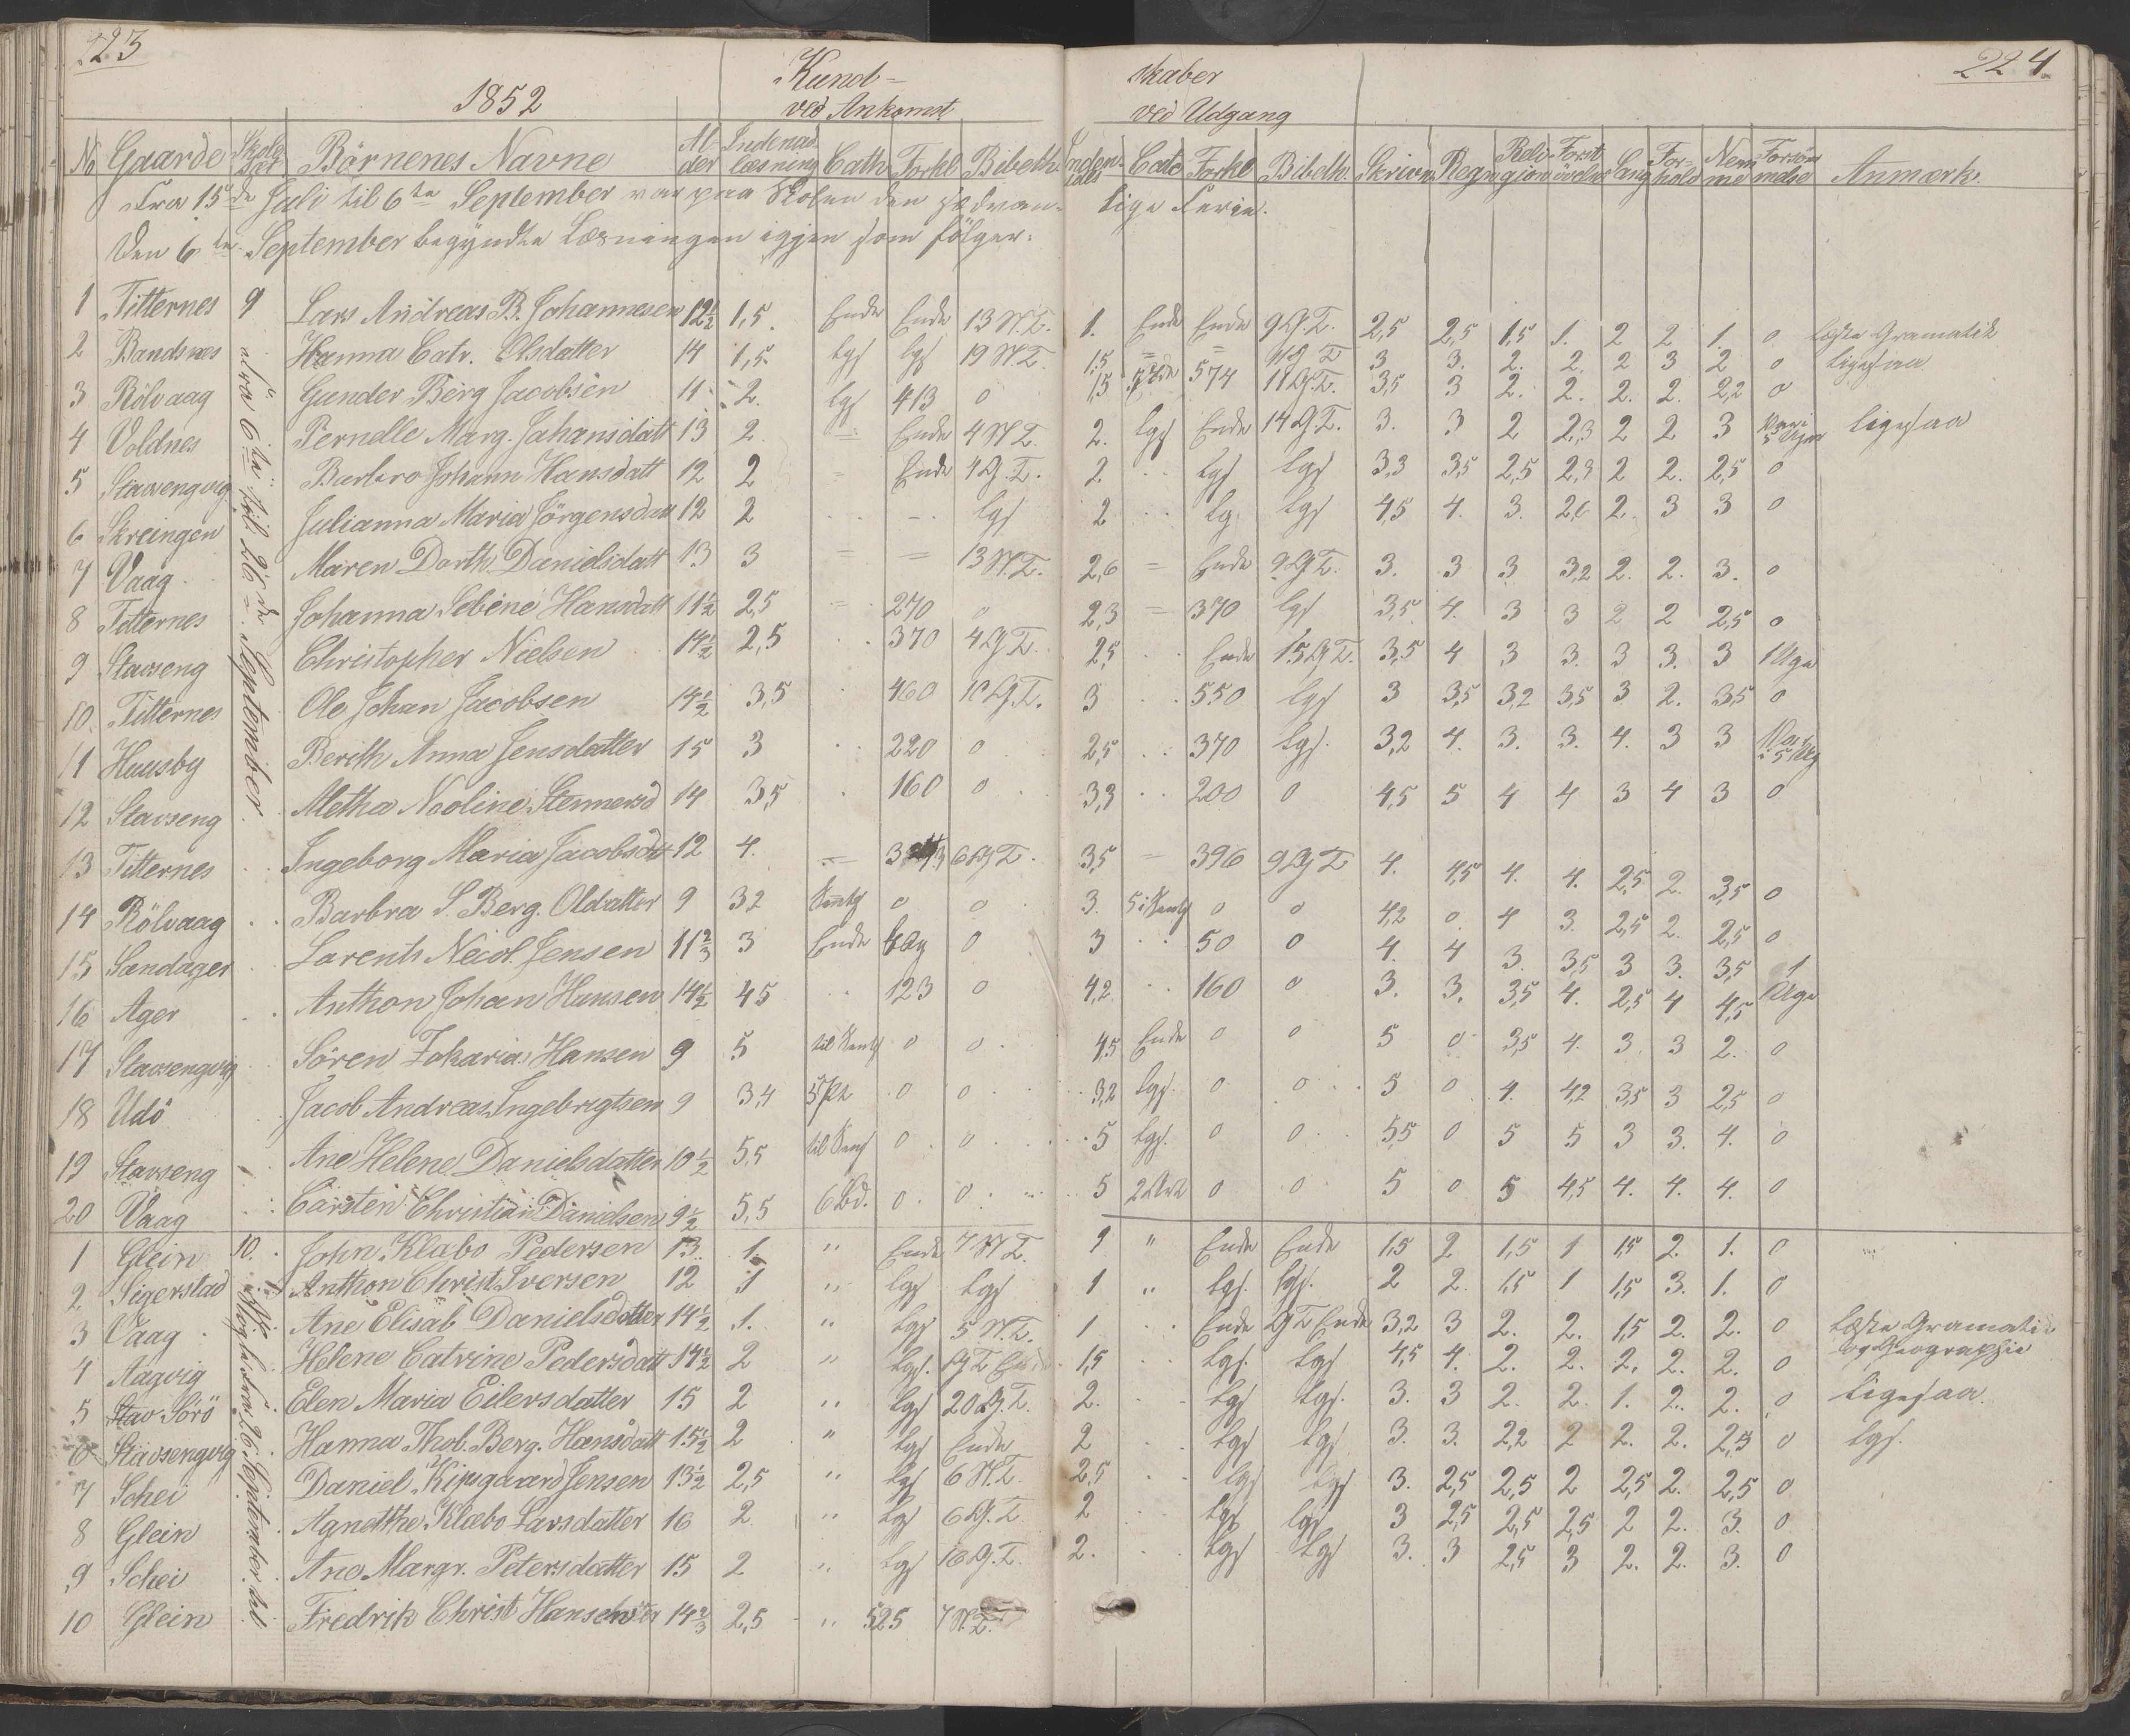 223
224
1852
Kund-
skaber
ved Ankomst
ved Udgang
No Gaarde Börnenes Navne Alder Indenadslæsning Cath Forkl Bibelh. Catc Forkl Bibelh. Skrivn Regn Religion Sang Forhold Nemme Anmærk.
Fra 15de Juli til 6te September var paa Skolen den sædvan- lige Ferie.
Den 6te September begyndte Læsningen igjen som fölger:
fra 6te til 26de September
1 Titternes 9 Lars Andreas B. Johannesen 12½ 1,5. Ende Ende 13 N.T. 1. Ende Ende 9 G.T. 2,5 2,5 1,5 1. 2 2 1. 0 Læste Gramatik
2 Bandsnæs Hanna Catr. Olsdatter 14 1,5. lgs lgs 19 N.T. 1,5 = = G T 3 3. 2. 2. 2 3 2 0 ligesaa
3 Rölvaag Gunder Berg Jacobsen 11 2. lgs 413 0 1,5 574 11 G.T. 3,5 3 2. 2. 2. 2. 2,2 0
4 Voldnes Pernelle Marg. Johansdatt 13 2. Ende 4 N T. 2. lgs Ende 14 G T. 3. 3 2 2,3 2 2 3 ligesaa
5 Stavsengvig Barbro Johann Hansdatt 12 2 Ende 4 G.T. 2. lgs lgs 3,3 3,5 2,5 2,3 2 2. 2,5 0
6 Skreingen Julianna Maria Jörgensdatt 12 2 lgs 2 lg lgs 4,5 4. 3. 2,6 2. 3 3 0
7 Vaag Maren Dorth. Danielsdatt 13 3 = = 13 N.T. 2,6 = Ende 9 G T. 3. 3 3 3,2 2. 2. 3. 0
8 Titternes Johanna Sebine Hansdatt 11½ 2,5 270 0 2,3 = 370 lgs 3,5. 4. 3 3 2 2 2,5 0
9 Stavseng Christopher Nielsen 14½ 2,5 370 4 G T. 2,5 Ende 15 G T. 3,5 4 3 3. 3 3. 3 1 Uge
10. Titternes Ole Johan Jacobsen 14½ 3,5 460 10 G.T. 3 550 lgs 3 3,5 3,2 3,5 3 2. 3,5 0
11 Huusby Berith Anna Jensdatter 15 3 220 0 2,5 370 lgs. 3,2 4. 3. 3. 4. 3 3
12 Stavseng Metha Nooline Stennersd 14 3,5 160 0 3,3 200 0 4,5 5 4 4 3 4 3 0
13 Titternes Ingeborg Maria Jacobsdt 12 4. 6 G T. 3,5 = 396 9 G T 4. 4,5 4. 4. 2,5 2. 3,5 0
14 Rölvaag Barbra S. Berg. Oldatter 9 3,2 0 0 3. 0 0 4,2 0. 4 3. 2,5 2. 2,5 0
15 Sandager Larents Necol. Jensen 11⅔ 3 Ende 0 3 50 0 4. 4 3. 3,5 3 3. 3,5 1 Uge
16 Ager Anthon Johan Hansen 14½ 4,5 123 0 4,2 160 0 3. 3. 3,5 4. 2,5 4 4,5
17 Stavsengvig Sören Zakarias Hansen 9 5 0 0 4,5 Ende 0 0 5 0 3,5 4. 3. 3 2. 0
18 Udö Jacob Andreas Ingebrigtsen 9 3,4 0 0 3,2 lgs. 0 0 5 0 4. 4,2 3,5 3 2,5 0
19 Stavseng Ane Helene Danielsdatter 10½ 5,5 0 0 5 lgs. 0 0 5,5 0 5 5 3 3. 4. 0
20 Vaag Carsten Christian Danielsen 9½ 5,5 6 Bd. 0 0 5 0 0 5 0 5 4,5 4. 4. 4. 0
fra 26 September til
1 Glein 10. John Klæbo Pedersen 13. 1. " Ende 7 N T. 1 " Ende Ende 1,5 2 1,5 1 1,5 2. 1. 0
2 Sigerstad Anthon Christ. Iversen 12 1 " lgs lgs 1 " lgs. lgs. 2 2. 1,5 1 1,5 3. 1. 0
3 Vaag Ane Elisab Danielsdatter 14½ 1. " lgs 5 N.T. 1 Ende G T Ende 3,2 3 2. 2. 1,5 2. 2. 0 Læste Gramatik
4 Aagvig Helene Catrine Pedersdatt 14½ 2 " lgs. G T Ende 1,5 lgs. lgs 4,5 4. 2. 2. 2. 2. 2. 0 og Geographie
5 Sörö Elen Maria Eilersdatter 15 2 " lgs 20 G.T. 2. lgs lgs. 3. 3 2. 2. 1. 2. 2. 0 ligesaa.
6 Stavsengvig Hanna Thob. Berg. Hansdatt 15½ 2 " lgs Ende 2 lgs lgs 3. 3. 2,2 2 2. 2. 2,3 0 lgs.
7 Schei Daniel Kipsgaard Jensen 13½ 2,5 " lgs 6 N.T. 2,5 lgs lgs 3. 2,5 2,5 2 2,5 2. 2,5 0
8 Glein Agnethe Klæbo Larsdatter 16 2. " lgs 6 G.T. 2 lgs lgs 3 2,5 2,5 2,5 2 2. 3. 0
9 Schei Ane Margr. Petersdatter 15 2 " lgs 10 G.T. 2. lgs lgs 3. 3 2,5 3 2. 2. 3. 0
10 Glein Fredrik Christ Hansen 14⅔ 2,5 " 525 7 N.T.